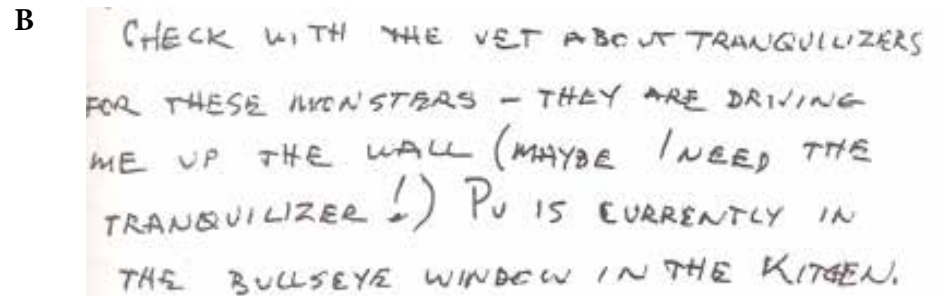 B
CHECK WITH THE VET ABOUT TRANQUILIZERS
FOR THESE MONSTERS – THEY ARE DRIVING
ME UP THE WALL (MAYBE I NEED THE
TRANQUILIZER!) PU IS CURRENTLY IN
THE BULLSEYE WINDOW IN THE KITGEN.